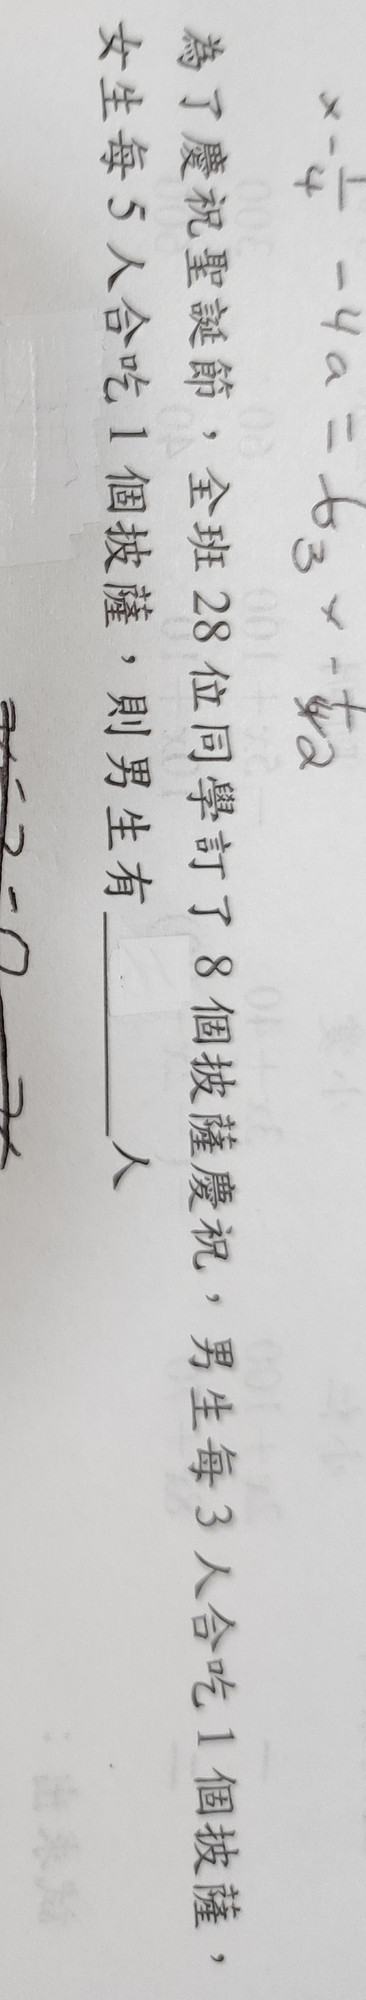 x - 1/4 - 4a = 6
為了慶祝聖誕節，全班28位同學訂了8個披薩慶祝，男生每3人合吃1個披薩，
女生每5人合吃1個披薩，則男生有______人